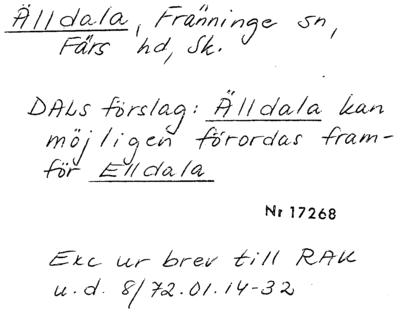 Älldala, Fränninge sn,
Färs hd, Sk.
DALs förslag: Älldala kan
möjligen förordas fram-
för Elldala
Nr 17268
Exc ur brev till RAK
u.d. 8/72.01.14-32